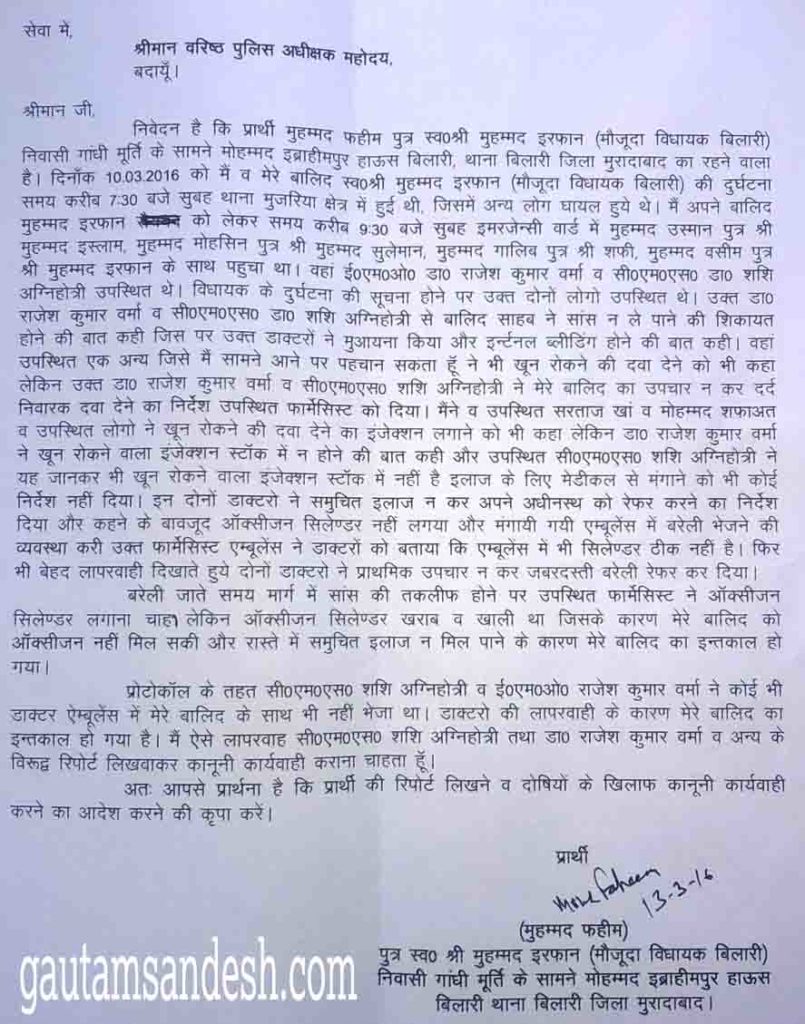 सेवा में,
श्रीमान वरिष्ठ पुलिस अधीक्षक महोदय,
बदायूँ।
श्रीमान जी,
निवेदन है कि प्रार्थी मुहम्मद फहीम पुत्र स्व०श्री मुहम्मद इरफान (मौजूदा विधायक बिलारी)
निवासी गांधी मूर्ति के सामने मोहम्मद इब्राहीमपुर हाऊस बिलारी, थाना बिलारी जिला मुरादाबाद का रहने वाला
है। दिनाँक 10.03.2016 को मैं व मेरे बालिद स्व०श्री मुहम्मद इरफान (मौजूदा विधायक बिलारी) की दुर्घटना
समय करीब 7:30 बजे सुबह थाना मुजरिया क्षेत्र में हुई थी, जिसमें अन्य लोग घायल हुये थे। मैं अपने बालिद
मुहम्मद इरफान को लेकर समय करीब 9:30 बजे सुबह इमरजेन्सी वार्ड में मुहम्मद उस्मान पुत्र श्री
मुहम्मद इस्लाम, मुहम्मद मोहसिन पुत्र श्री मुहम्मद सुलेमान, मुहम्मद गालिब पुत्र श्री शफी, मुहम्मद वसीम पुत्र
श्री मुहम्मद इरफान के साथ पहुचा था। वहां ई०एम०ओ० डा० राजेश कुमार वर्मा व सी०एम०एस० डा० शशि
अग्निहोत्री उपस्थित थे। विधायक के दुर्घटना की सूचना होने पर उक्त दोनों लोगो उपस्थित थे। उक्त डा०
राजेश कुमार वर्मा व सी०एम०एस० डा० शशि अग्निहोत्री से बालिद साहब ने सांस न ले पाने की शिकायत
होने की बात कही जिस पर उक्त डाक्टरों ने मुआयना किया और इन्टर्नल ब्लीडिंग होने की बात कही। वहां
उपस्थित एक अन्य जिसे मैं सामने आने पर पहचान सकता हूँ ने भी खून रोकने की दवा देने को भी कहा
लेकिन उक्त डा० राजेश कुमार वर्मा व सी०एम०एस० शशि अग्निहोत्री ने मेरे बालिद का उपचार न कर दर्द
निवारक दवा देने का निर्देश उपस्थित फार्मेसिस्ट को दिया। मैंने व उपस्थित सरताज खां व मोहम्मद शफाअत
व उपस्थित लोगो ने खून रोकने की दवा देने का इंजेक्शन लगाने को भी कहा लेकिन डा० राजेश कुमार वर्मा
ने खून रोकने वाला इंजेक्शन स्टॉक में न होने की बात कही और उपस्थित सी०एम०एस० शशि अग्निहोत्री ने
यह जानकर भी खून रोकने वाला इंजेक्शन स्टॉक में नहीं है इलाज के लिए मेडीकल से मंगाने को भी कोई
निर्देश नहीं दिया। इन दोनों डाक्टरो ने समुचित इलाज न कर अपने अधीनस्थ को रेफर करने का निर्देश
दिया और कहने के बावजूद ऑक्सीजन सिलेण्डर नहीं लगया और मंगायी गयी एम्बूलेंस में बरेली भेजने की
व्यवस्था करी उक्त फार्मेसिस्ट एम्बूलेंस ने डाक्टरों को बताया कि एम्बूलेंस में भी सिलेण्डर ठीक नहीं है। फिर
भी बेहद लापरवाही दिखाते हुये दोनों डाक्टरो ने प्राथमिक उपचार न कर जबरदस्ती बरेली रेफर कर दिया।
बरेली जाते समय मार्ग में सांस की तकलीफ होने पर उपस्थित फार्मेसिस्ट ने ऑक्सीजन
सिलेण्डर लगाना चाहा लेकिन ऑक्सीजन सिलेण्डर खराब व खाली था जिसके कारण मेरे बालिद को
ऑक्सीजन नहीं मिल सकी और रास्ते में समुचित इलाज न मिल पाने के कारण मेरे बालिद का इन्तकाल हो
गया।
प्रोटोकॉल के तहत सी०एम०एस० शशि अग्निहोत्री व ई०एम०ओ० राजेश कुमार वर्मा ने कोई भी
डाक्टर ऐम्बूलेंस में मेरे बालिद के साथ भी नहीं भेजा था। डाक्टरो की लापरवाही के कारण मेरे बालिद का
इन्तकाल हो गया है। मैं ऐसे लापरवाह सी०एम०एस० शशि अग्निहोत्री तथा डा० राजेश कुमार वर्मा व अन्य के
विरूद्व रिपोर्ट लिखवाकर कानूनी कार्यवाही कराना चाहता हूँ।
अतः आपसे प्रार्थना है कि प्रार्थी की रिपोर्ट लिखने व दोषियों के खिलाफ कानूनी कार्यवाही
करने का आदेश करने की कृपा करें।
प्रार्थी
Mohd Faheem
13-3-16
(मुहम्मद फहीम)
पुत्र स्व० श्री मुहम्मद इरफान (मौजूदा विधायक बिलारी)
निवासी गांधी मूर्ति के सामने मोहम्मद इब्राहीमपुर हाऊस
बिलारी थाना बिलारी जिला मुरादाबाद।
gautamsandesh.com